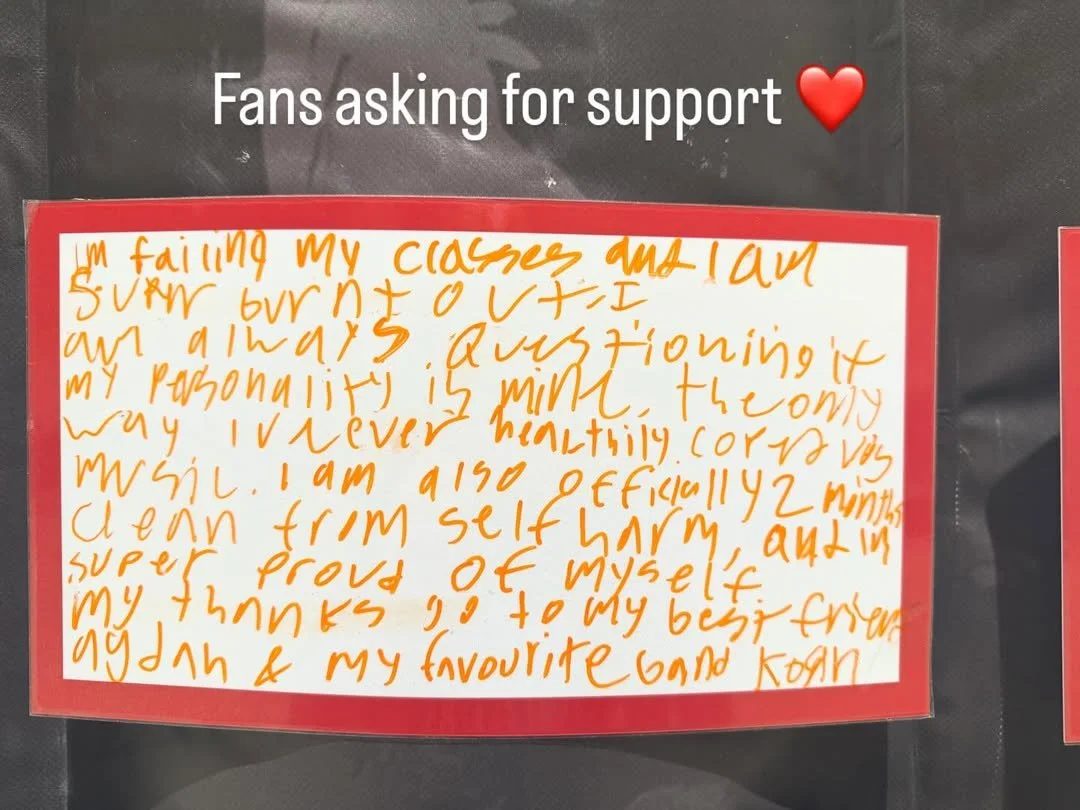 Fans asking for support ❤️
im failing my classes and I am
super burnt out. I
am always questioning if
my personality is mine. the only
way iv never healthily cope was
music. I am also officially 2 months
clean from self harm, and im
super proud of myself
my thanks go to my best friend
aydan & my favourite band Korn